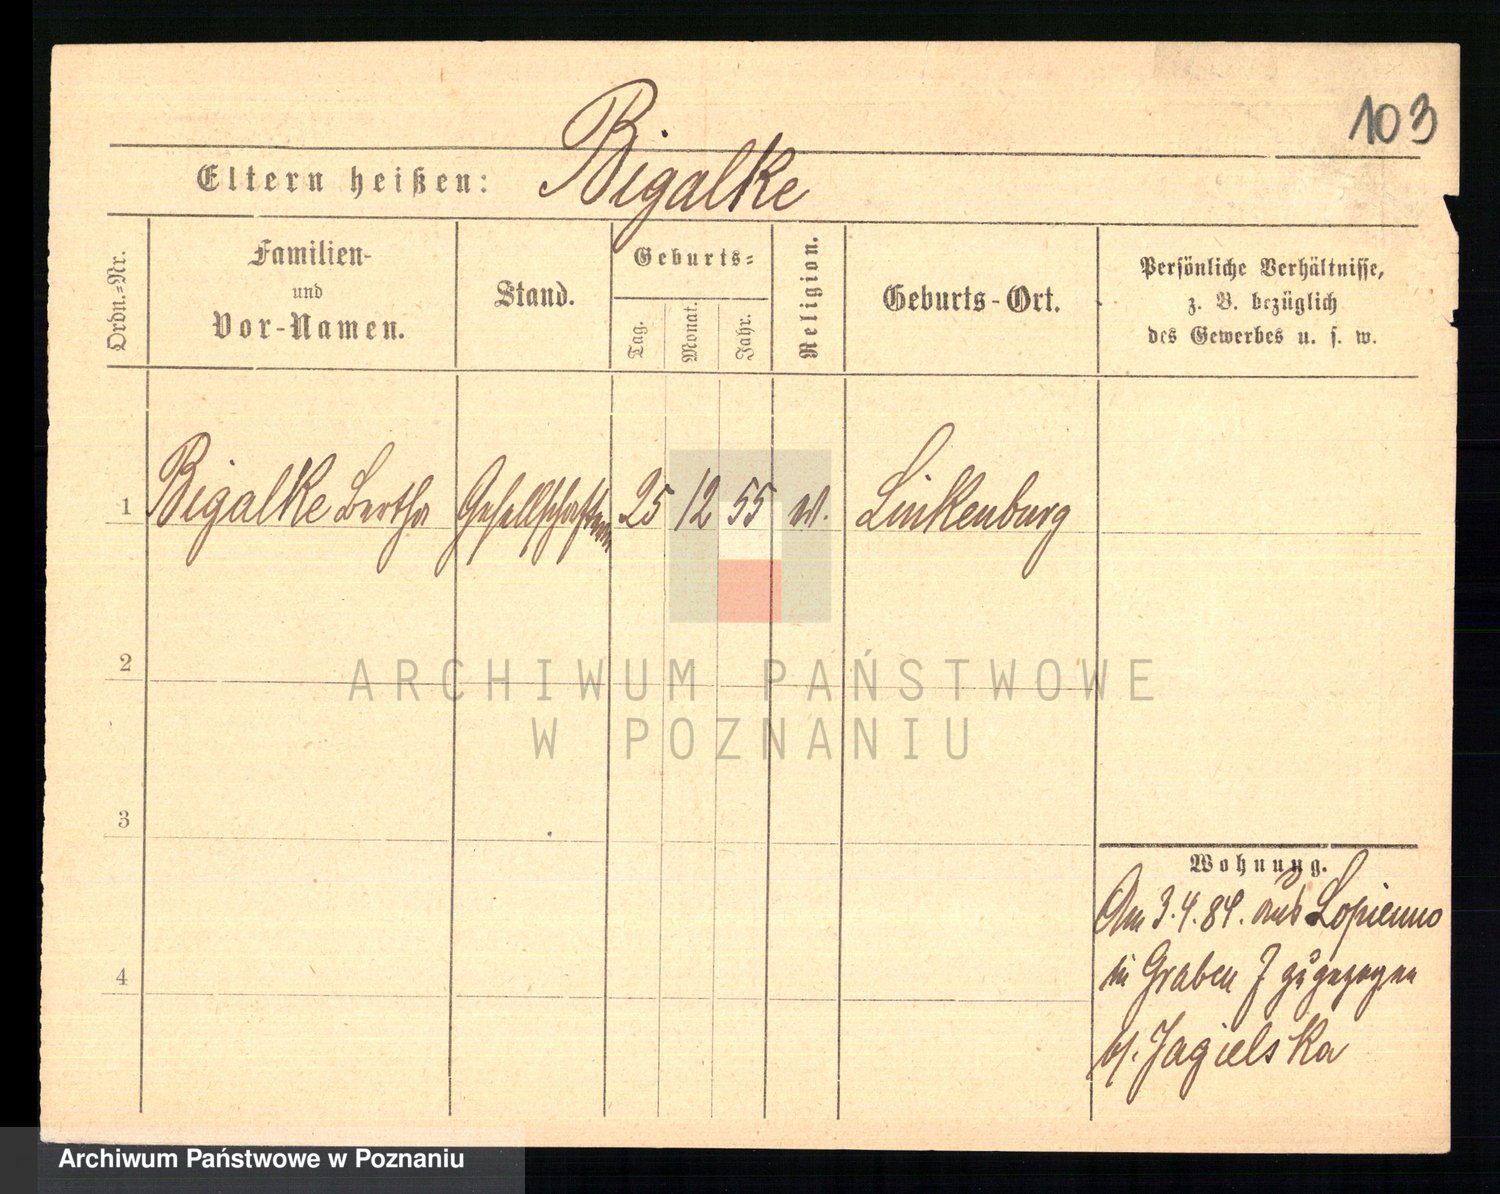 103
Eltern heißen: Bigalke
Ordn.-Nr.
Familien-
und
Vor-Namen.
Stand.
Geburts-
Tag.
Monat.
Jahr.
Religion.
Geburts-Ort.
Persönliche Verhältnisse,
z. B. bezüglich
des Gewerbes u. s. w.
1 Bigalke Bertha Gesellschafterin 25 12 55 Linkenburg
2
ARCHIWUM PAŃSTWOWE
W POZNANIU
3
Wohnung.
Am 3.4.84. aus Lopienno
4
in Graben 7 zugezogen
b/. Jagielska
Archiwum Państwowe w Poznaniu